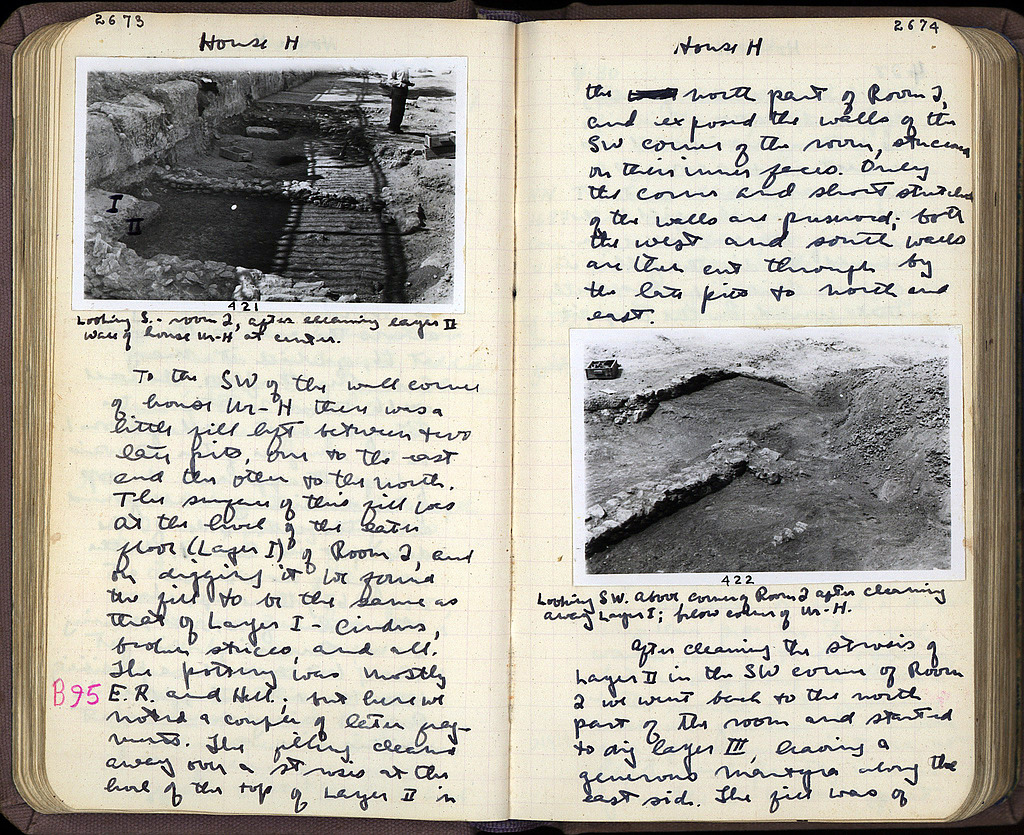 2673
House H
I
II
421
Looking S. - room 2, after cleaning layer II
wall of house Ur-H at center.
To the SW of the wall corner
of house Ur-H there was a
little fill left between two
late pits, one to the east
and the other to the north.
The surface of this fill was
at the level of the later
floor (Layer I) of Room 2, and
on digging it we found
the fill to be the same as
that of Layer I - Cinders,
broken stucco, and all.
The pottery was mostly
B95
E.R. and Hell.; but here we
noted a couple of later frag-
ments. The filling cleaned
away over a strosis at the
level of the top of Layer II in
2674
House H
the north part of Room 2,
and exposed the walls of the
SW corner of the room, stuccoed
on their inner faces. Only
the corner and short stretches
of the walls are preserved; both
the west and south walls
are then cut through by
the late pits to north and
east.
422
Looking SW. Above corner of Room 2 after cleaning
away Layer I; below corner of Ur-H.
After cleaning the strosis of
Layer II in the SW corner of Room
2 we went back to the north
part of the room and started
to dig layer III, leaving a
generous martyra along the
east side. The fill was of